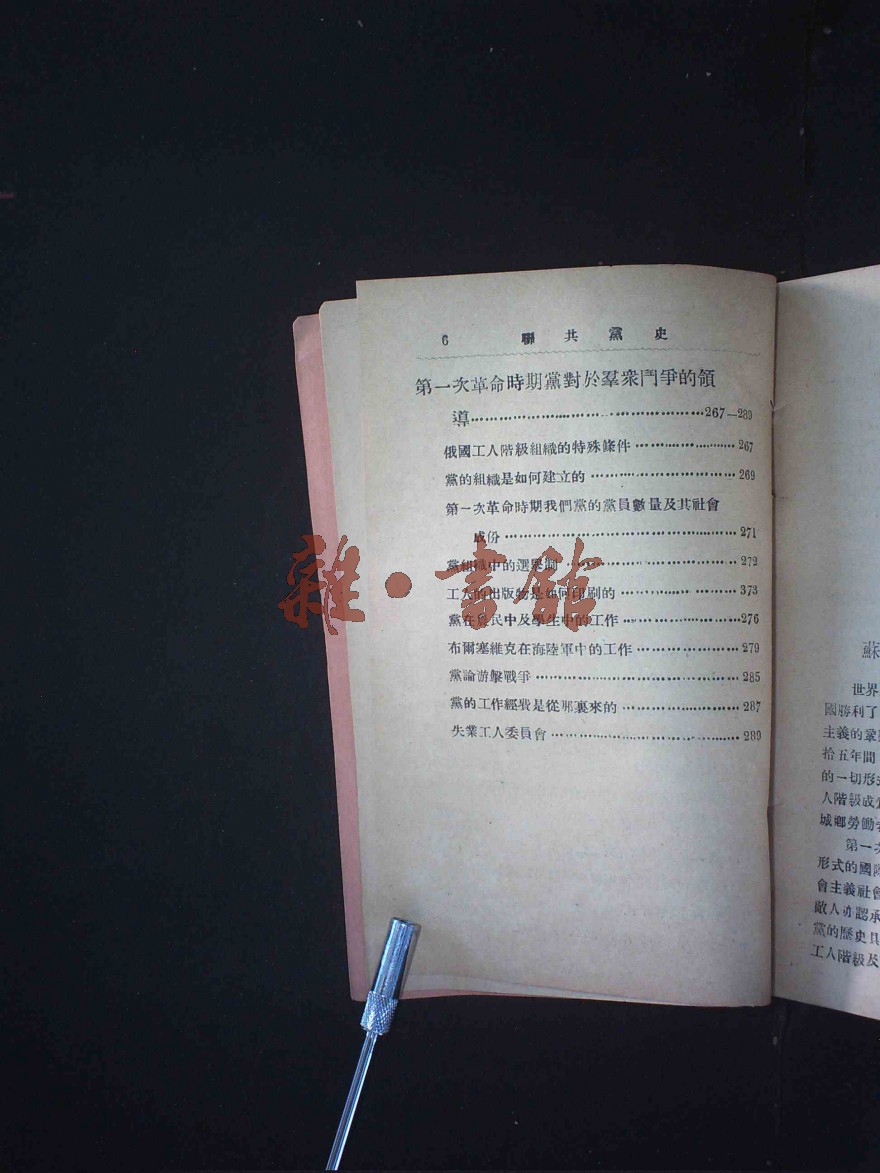 6 聯共黨史
第一次革命時期黨對於羣衆鬥爭的領
導……267—289
俄國工人階級組織的特殊條件……267
黨的組織是如何建立的……269
第一次革命時期我們黨的黨員數量及其社會
成份……271
黨組織中的選舉制……272
工人的出版物是如何印刷的……373
黨在農民中及學生中的工作……276
布爾塞維克在海陸軍中的工作……279
黨論游擊戰爭……285
黨的工作經費是從那裏來的……287
失業工人委員會……289
雜·書館
蘇
世界
國勝利了
主義的鞏
拾五年間
的一切形式
人階級成
城鄉勞働者
第一次
形式的國際
會主義社會
敵人
承
黨的歷史具
工人階級及